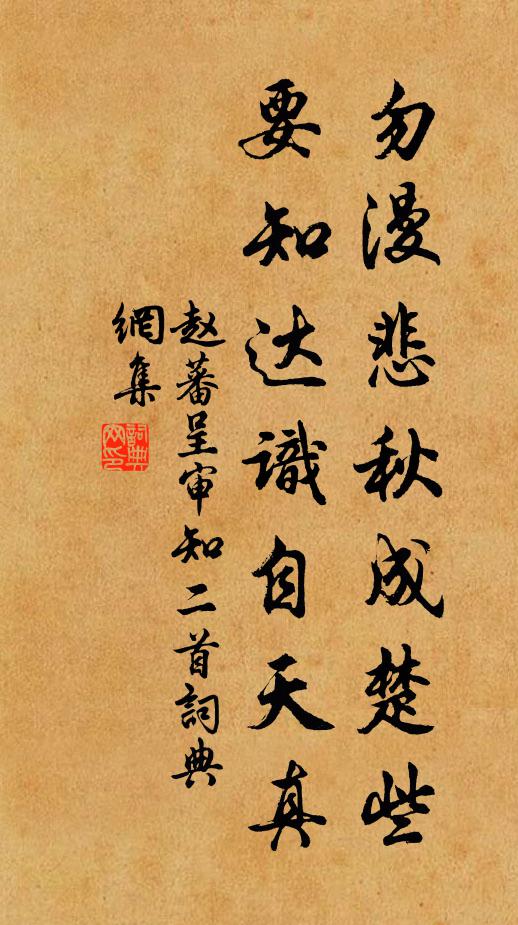 勿漫悲秋成楚些
要知达識自天真
赵蕃呈审知二首詞典
網集
詞典
网印